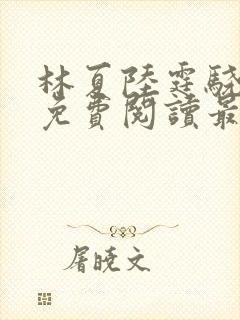 林夏陸霆驍
免費閱讀最
屠曉文